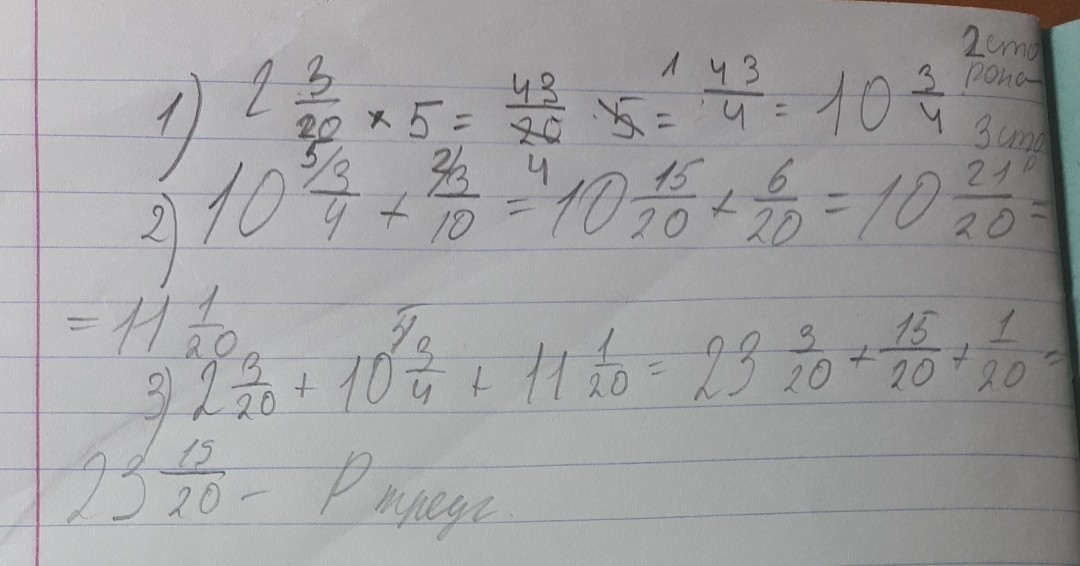 1) 2 3/20 × 5 = 43/20 · 5 = 43/4 = 10 3/4 2 сторона
2) 10 3/4 + 3/10 = 10 15/20 + 6/20 = 10 21/20 = 3 стор
= 11 1/20
3) 2 3/20 + 10 3/4 + 11 1/20 = 23 3/20 + 15/20 + 1/20 =
23 15/20 - P треуг.